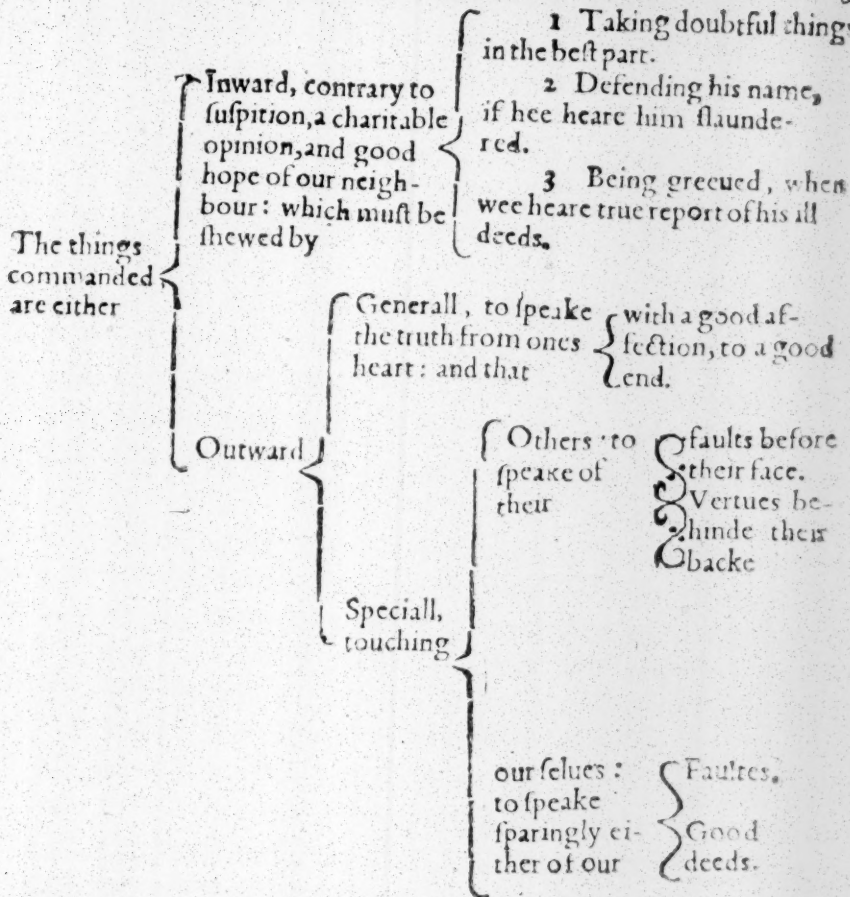 The things
commanded
are either
Inward, contrary to
ſuſpition, a charitable
opinion, and good
hope of our neigh-
bour: which muſt be
ſhewed by
1 Taking doubtful things
in the beſt part.
2 Defending his name,
if hee heare him ſlaunde-
red.
3 Being greeued, when
wee heare true report of his ill
deeds.
Outward
Generall, to ſpeake
the truth from ones
heart: and that
with a good af-
fection, to a good
end.
Speciall,
touching
Others: to
ſpeake of
their
faults before
their face.
Vertues be-
hinde their
backe
our ſelues:
to ſpeake
ſparingly ei-
ther of our
Faultes.
Good
deeds.